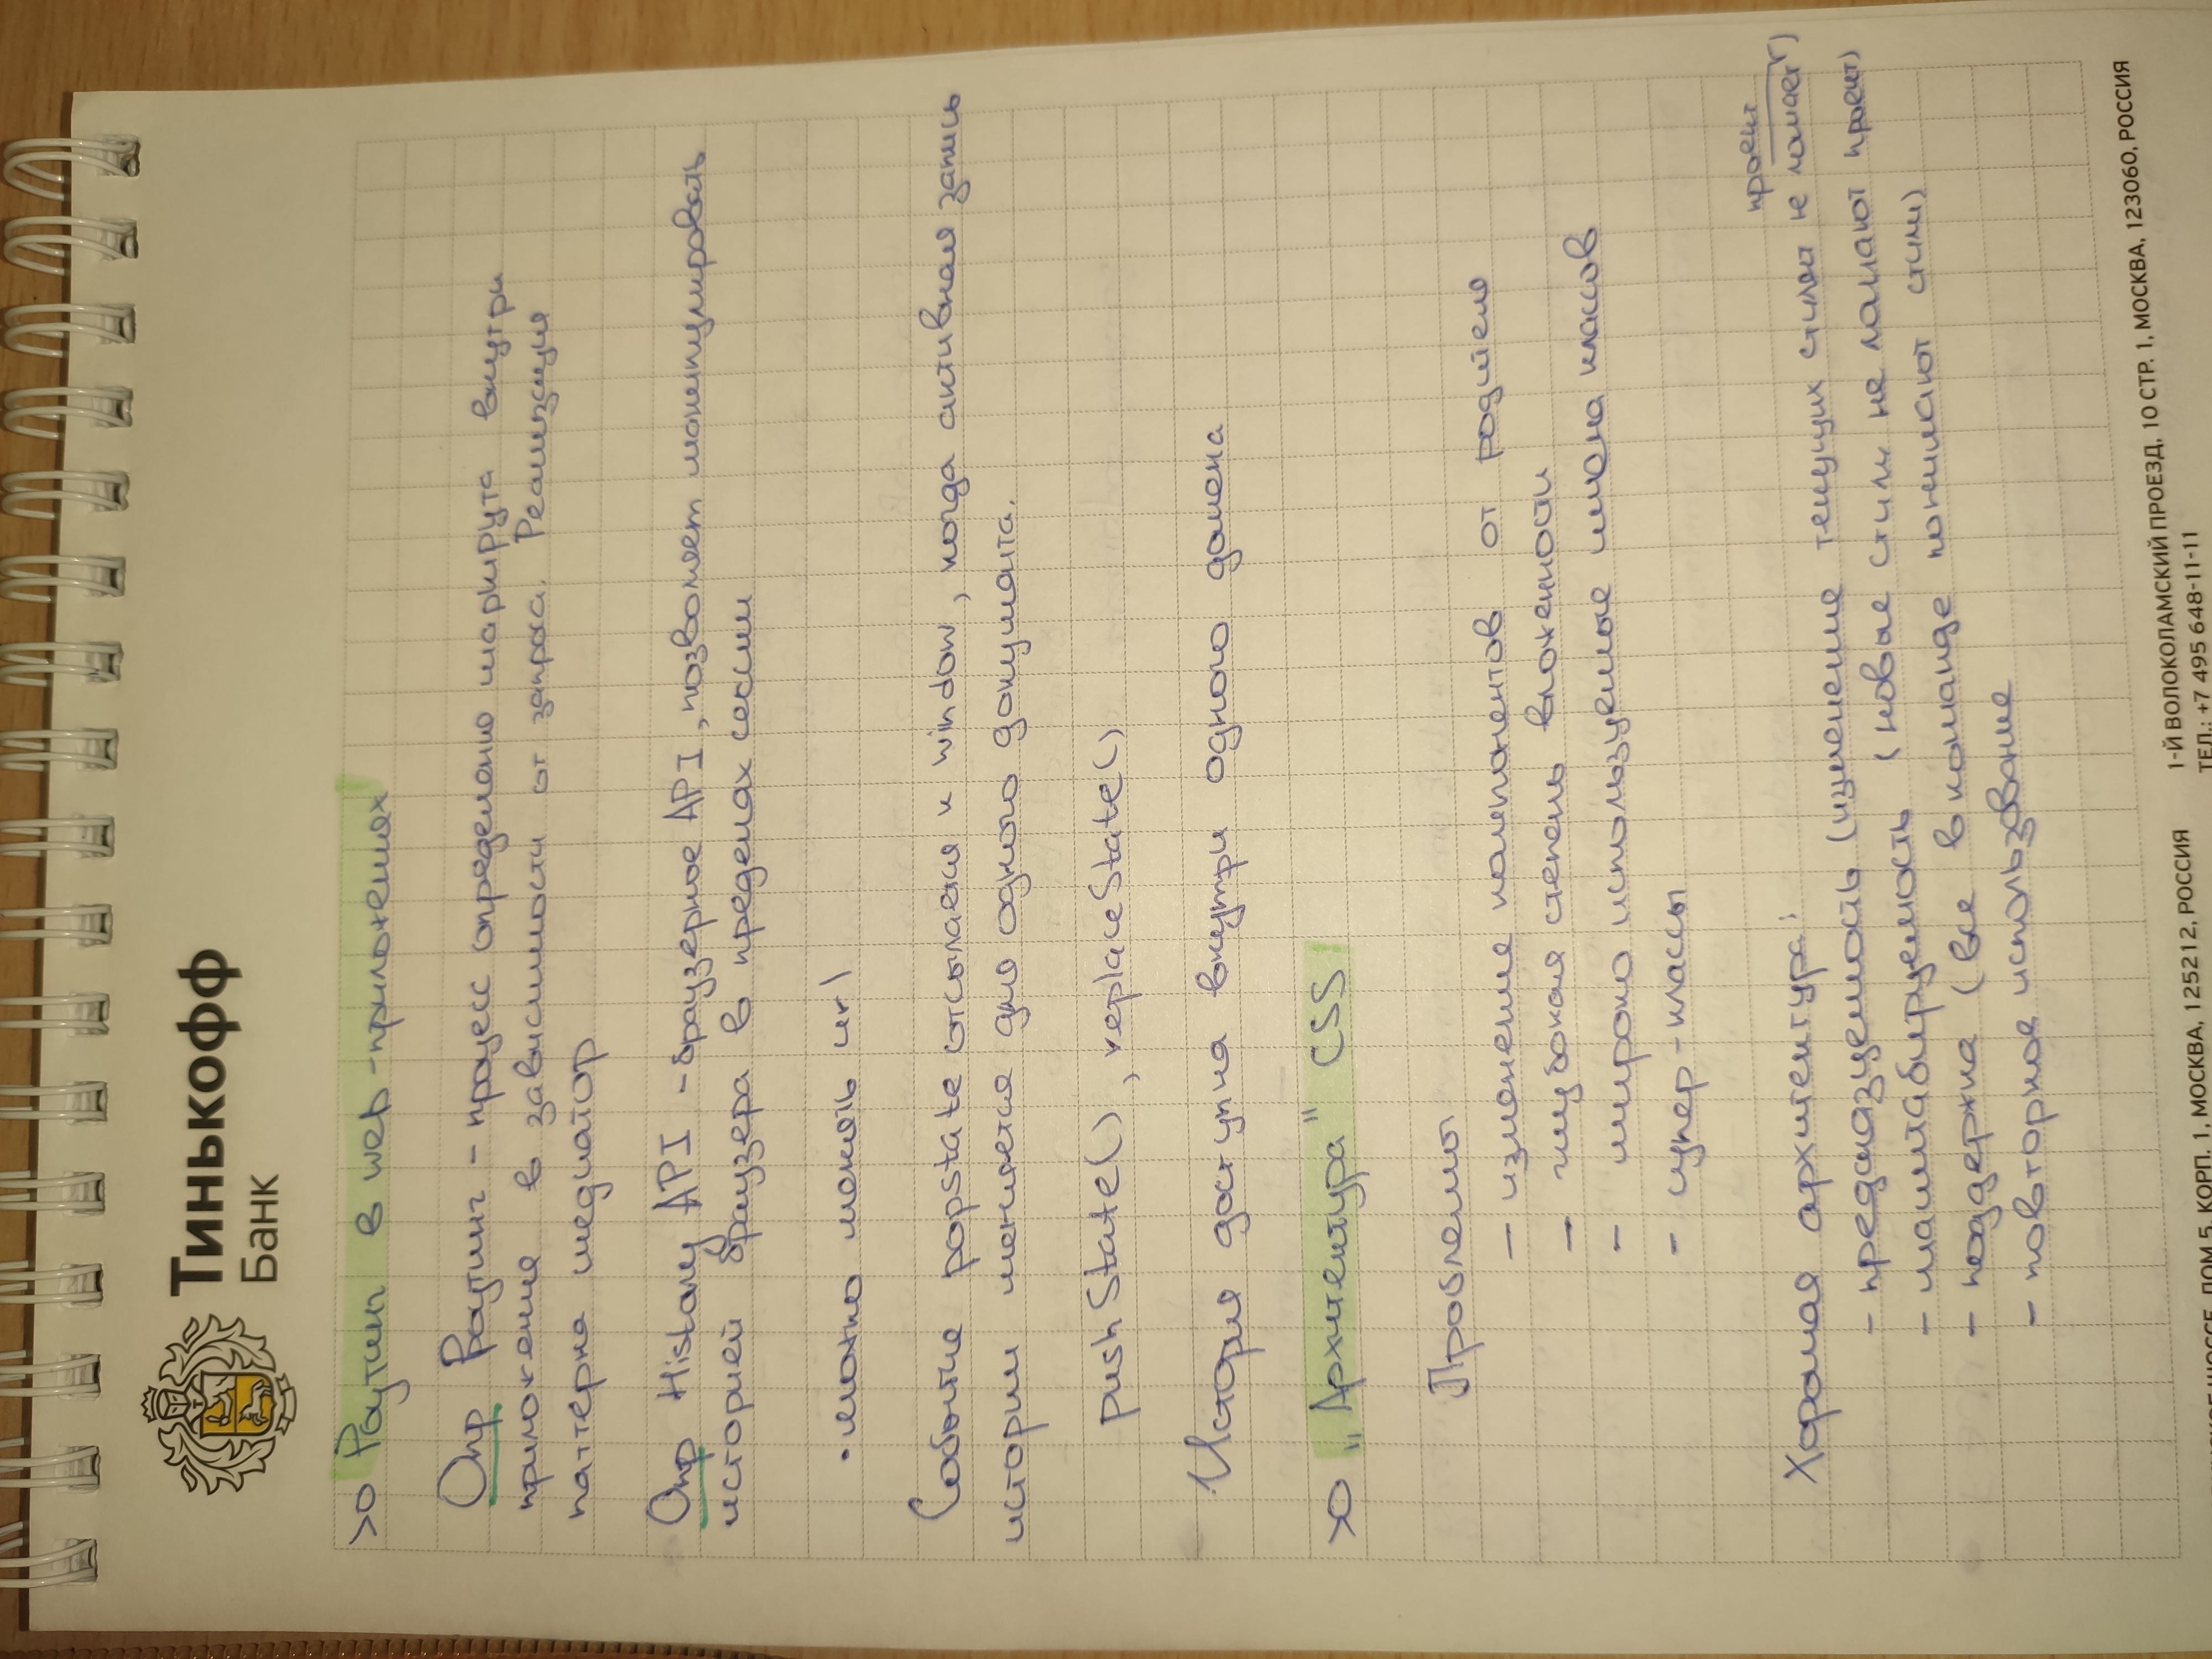 Тинькофф
Банк
>0 Роутинг в web-приложениях
Опр Роутинг - процесс определения маршрута внутри
приложения в зависимости от запроса. Реализация
паттерна медиатор
Опр History API - браузерное API, позволяет манипулировать
историей браузера в пределах сессии
• можно менять url
Событие popstate отсылается к window, когда активная запись
истории меняется для одного документа.
pushState(), replaceState()
История доступна внутри одного домена
>0 „Архитектура" CSS
Проблемы
- изменение компонентов от родителя
- глубокая степень вложенности
- широко используемые имена классов
- супер-классы
Хорошая архитектура:
проект
- предсказуемость (изменение текущих стилей не ломает)
- масштабируемость (новые стили не ломают проект)
- поддержка (все в команде понимают стили)
- повторное использование
ШОССЕ, ДОМ 5, КОРП. 1, МОСКВА, 125212, РОССИЯ
1-Й ВОЛОКОЛАМСКИЙ ПРОЕЗД, 10 СТР. 1, МОСКВА, 123060, РОССИЯ
ТЕЛ.: +7 495 648-11-11